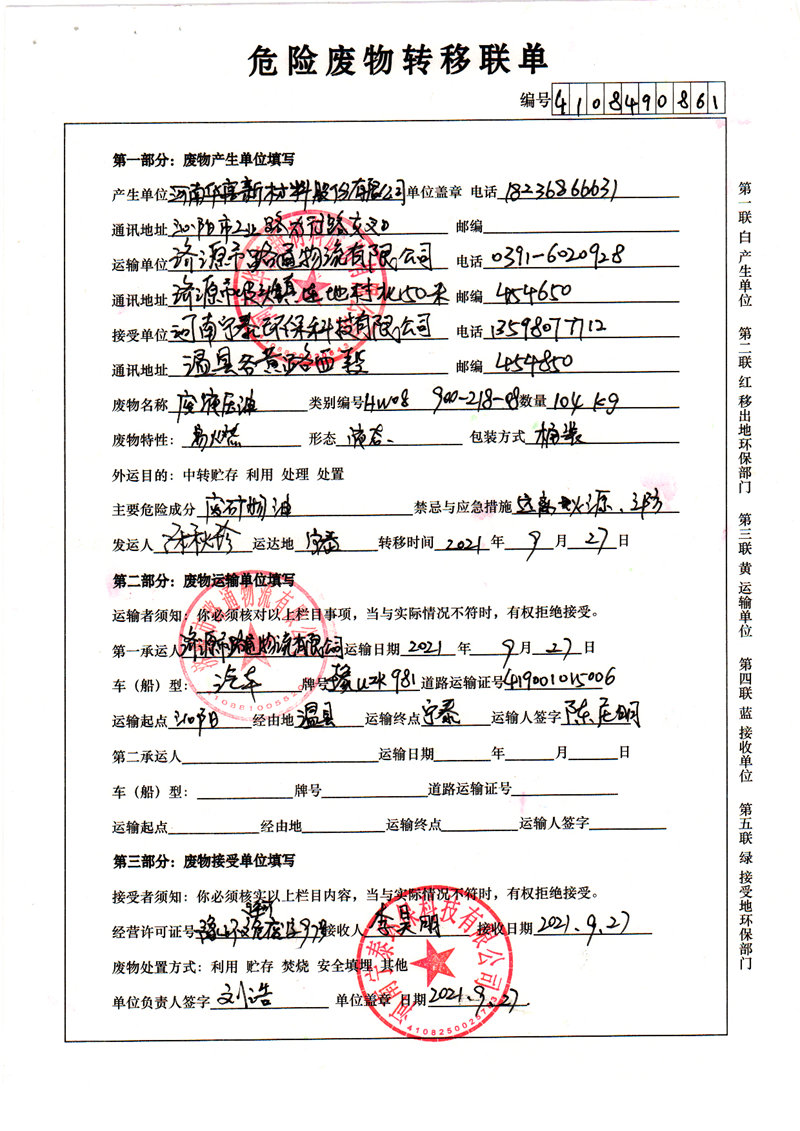 危险废物转移联单
编号 4108490861
第一部分：废物产生单位填写
产生单位 河南华 新材料股份有限公司 单位盖章 电话 18236866631
通讯地址 沁阳市工业路 路交叉口 邮编
运输单位 济源市路通物流有限公司 电话 0391-6020928
通讯地址 济源市 镇 地村北150米 邮编 454650
接受单位 河南宁泰环保科技有限公司 电话 13598077712
通讯地址 温县谷黄路西段 邮编 454850
废物名称 废液压油 类别编号 HW08 900-218-08 数量 104 kg
废物特性： 易燃 形态 液态、 包装方式 桶装
外运目的：中转贮存 利用 处理 处置
主要危险成分 废矿物油 禁忌与应急措施 远离火源、
发运人 运达地 宁泰 转移时间 2021 年 9 月 27 日
第二部分：废物运输单位填写
运输者须知：你必须核对以上栏目事项，当与实际情况不符时，有权拒绝接受。
第一承运人 济源市路通物流有限公司 运输日期 2021 年 9 月 27 日
车（船）型： 汽车 牌号 豫U2K981 道路运输证号 419001015006
运输起点 沁阳 经由地 温县 运输终点 宁泰 运输人签字 陈
第二承运人 运输日期 年 月 日
车（船）型： 牌号 道路运输证号
运输起点 经由地 运输终点 运输人签字
第三部分：废物接受单位填写
接受者须知：你必须核实以上栏目内容，当与实际情况不符时，有权拒绝接受。
经营许可证号 接收人 李昊明 接收日期 2021.9.27
废物处置方式：利用 贮存 焚烧 安全填埋 其他
单位负责人签字 刘浩 单位盖章 日期 2021.9.27.
河南宁泰环保科技有限公司
第一联 白 产生单位
第二联 红 移出地环保部门
第三联 黄 运输单位
第四联 蓝 接收单位
第五联 绿 接受地环保部门